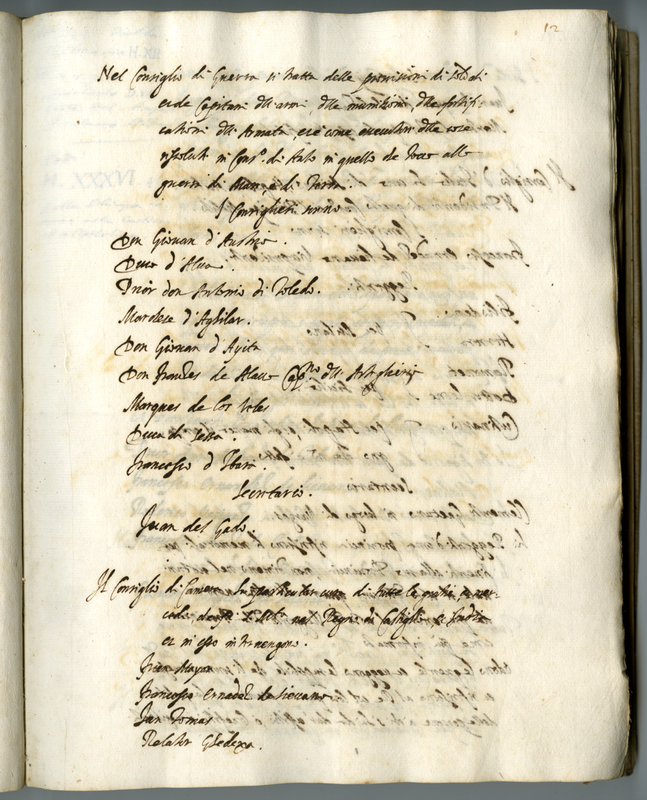 12
Nel Consiglio di Guerra si tratta delle provisioni di soldati
et de Capitani dell'armi, delle munitioni, delle fortifi-
cationi dell'Armata, et come executori delle cose
risolute in Cons.o di Stato in quello che tocca alle
guerre di Mare, e di Terra.
I Consiglieri sono
Don Giovan d'Austria.
Duca d'Alva.
Prior don Antonio di Toledo.
Marchese d'Aghilar.
Don Giovan d'Ayala
Don Frances de Alava Cap.no dell'Artigliaria
Marques de los Veles
Duca di Sessa.
Francesco d'Ibara.
Secretario.
Juan del Gado.
Il Consiglio di Camera ha particular cura di tutte le gratie, et mer-
cede S. M.tà nel Regno di Castiglia et Indie
et in esso intervengono.
Francesco
Juan Tomas
Relator